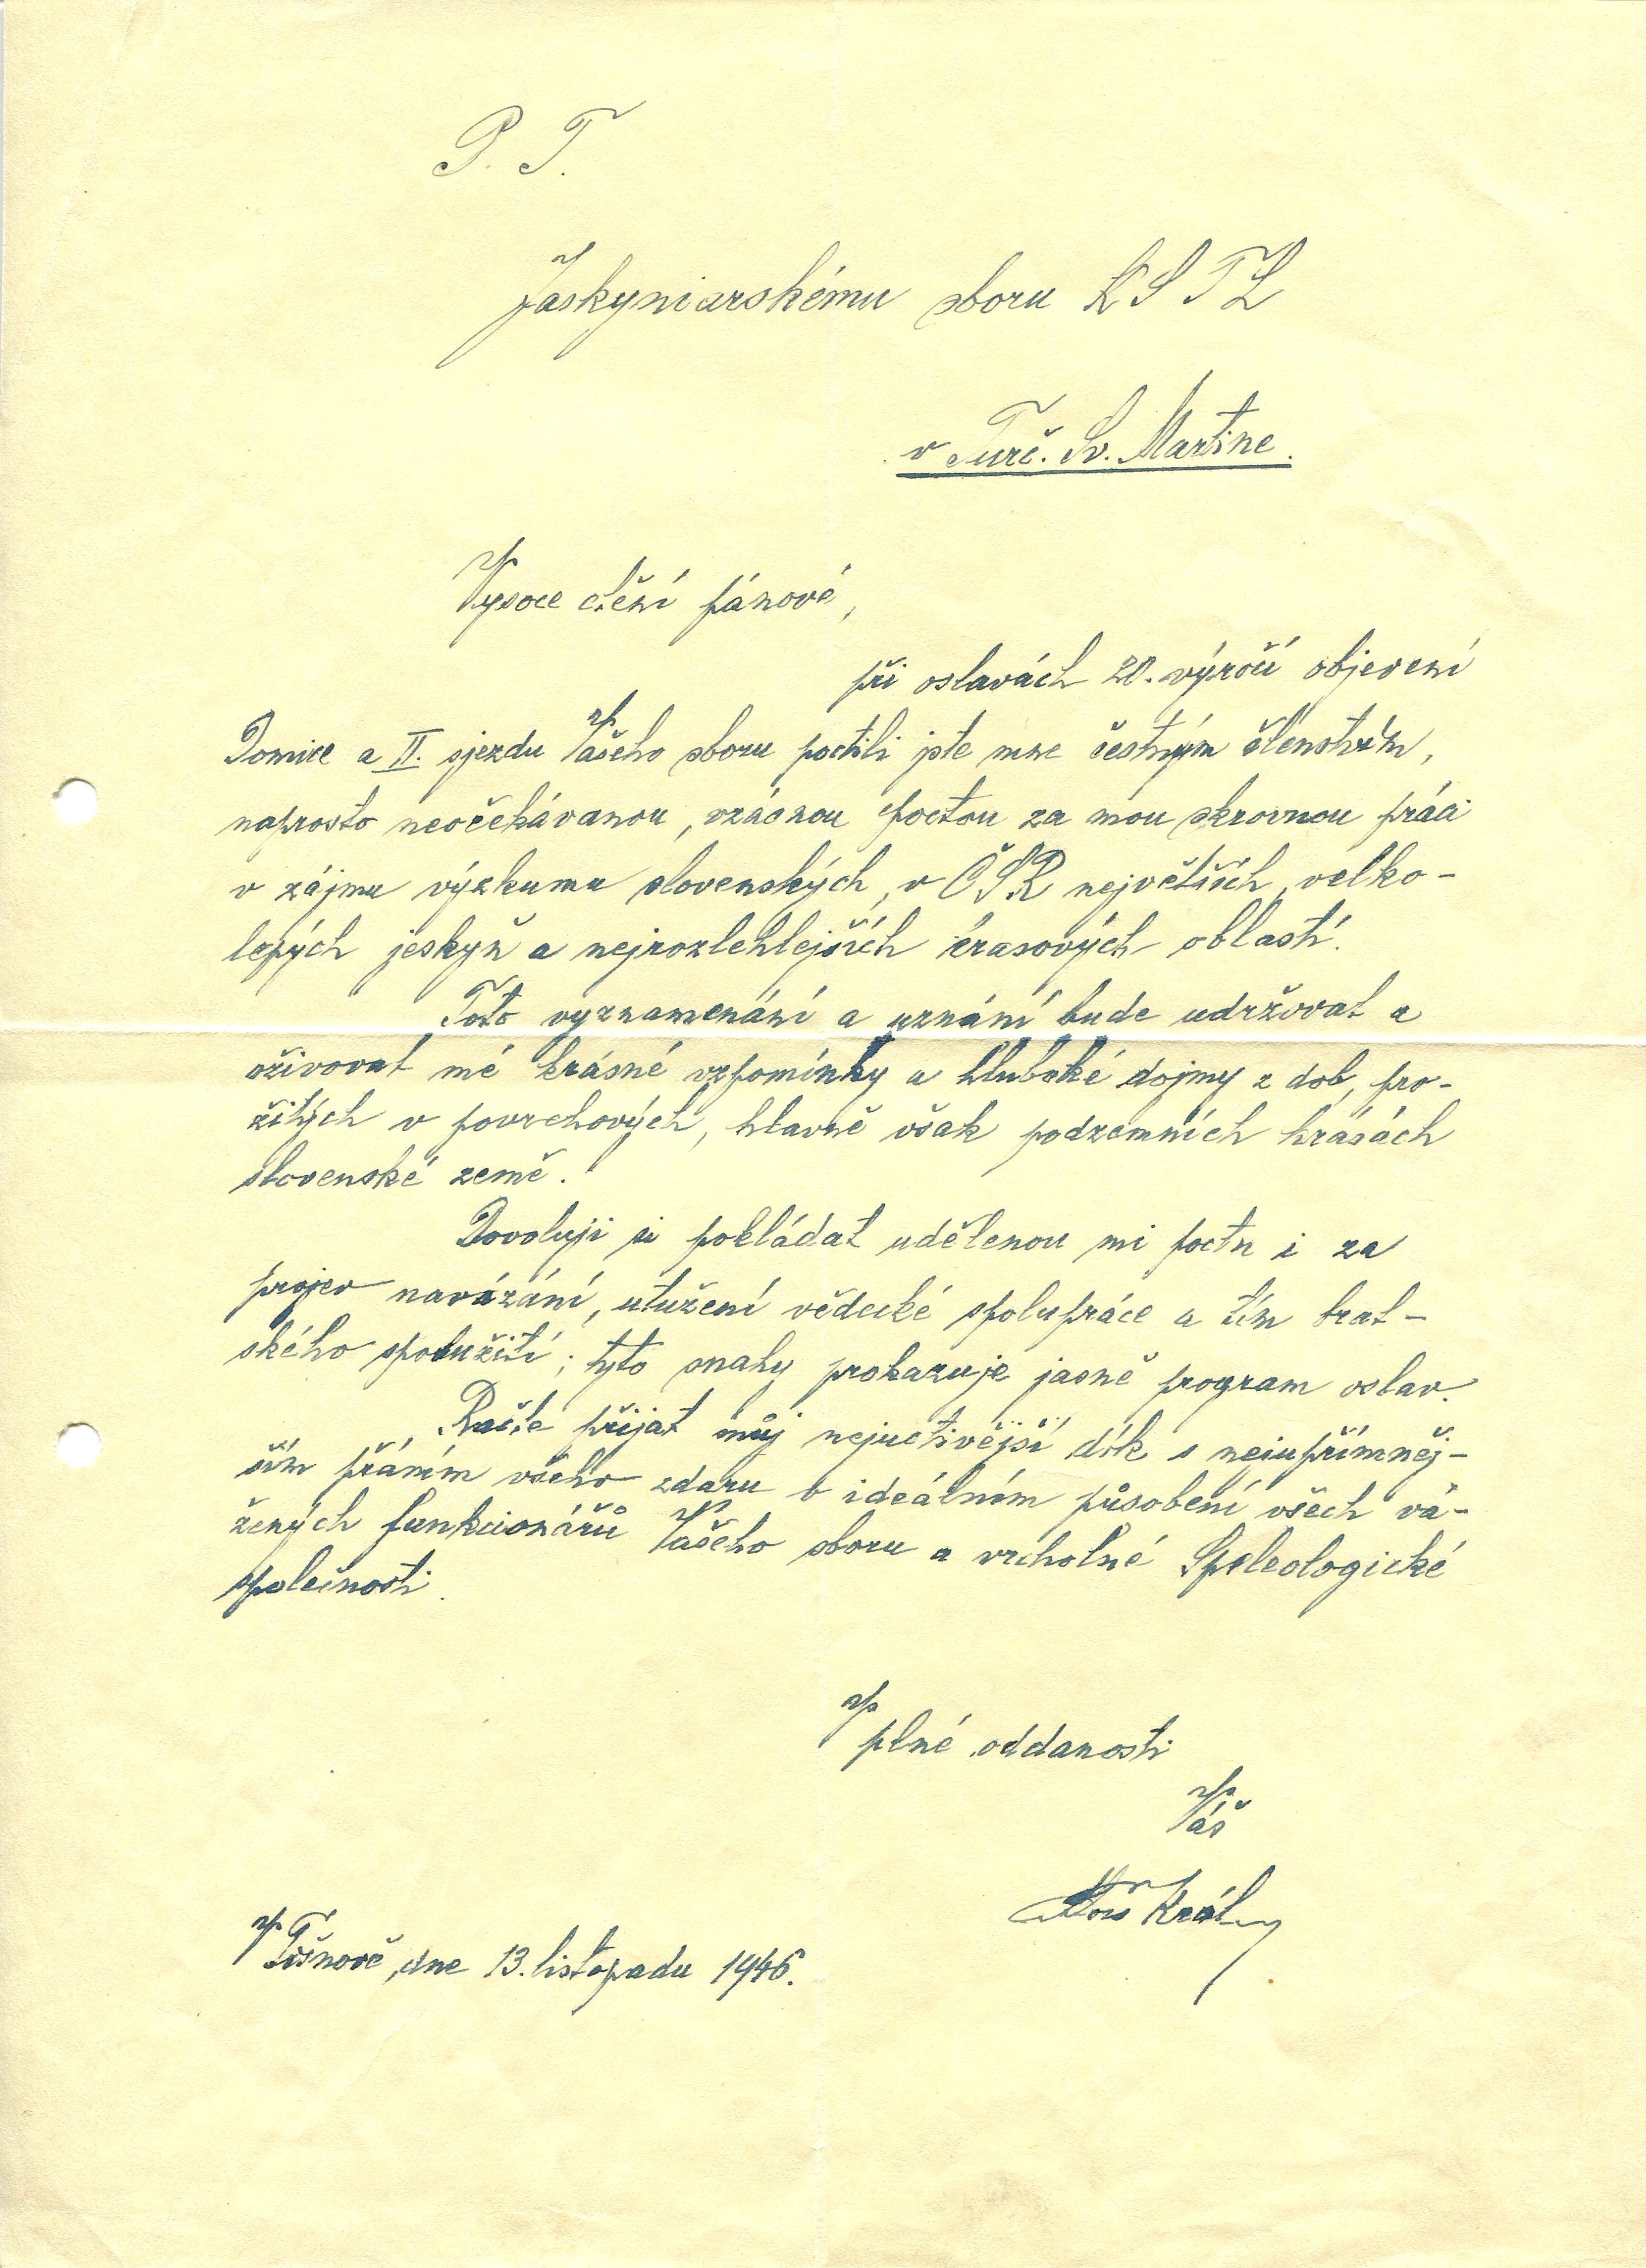 P. T.
Jaskyniarskému sboru KSTL
v Turč. Sv. Martine.
Vysoce ctění pánové,
při oslavách 20. výročí objevení
Domice a II. sjezdu Vašeho sboru poctili jste mne čestným členstvím,
naprosto neočekávanou, vzácnou poctou za mou skrovnou práci
v zájmu výzkumu slovenských, v ČSR největších, velko-
lepých jeskyň a nejrozlehlejších krasových oblastí.
Toto vyznamenání a uznání bude udržovat a
oživovat mé krásné vzpomínky a hluboké dojmy z dob, pro-
žitých v povrchových, hlavně však podzemních krásách
slovenské země.
Dovoluji si pokládat udělenou mi poctu i za
projev navázání, utužení vědecké spolupráce a tím brat-
ského spolužití; tyto snahy prokazuje jasně program oslav.
Račte přijat můj nejuctivější dík s nejupřímněj-
ším přáním všeho zdaru v ideálním působení všech vá-
žených funkcionářů Vašeho sboru a vrcholné Speleologické
společnosti.
V plné oddanosti
Váš
Alois Král
V Tišnově, dne 13. listopadu 1946.